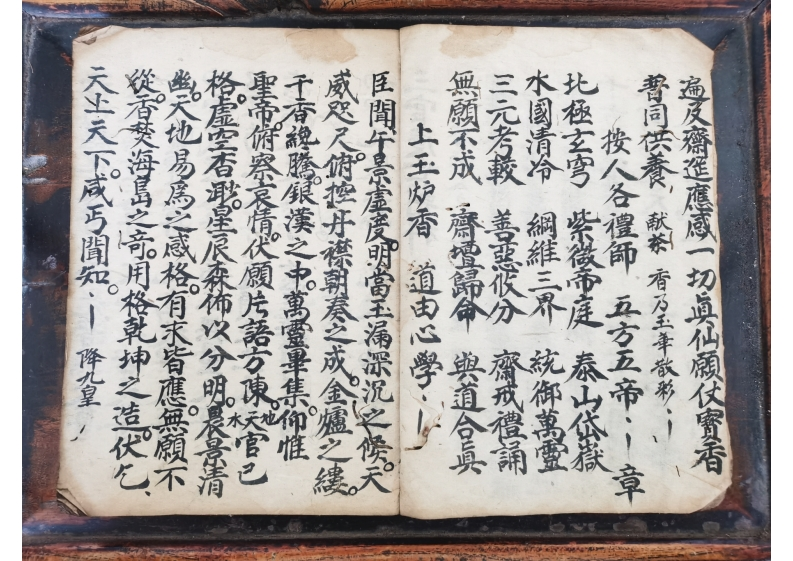 遍及齋筵應感一切真仙願仗寶香
普同供養 献茶 香乃玉華散彩
按人各禮師 五方五帝 章
北極玄穹 紫微帝庭 泰山岱嶽
水國清冷 綱維三界 統御萬靈
三元考較 善惡攸分 齋戒禮誦
無願不成 齋壇歸命 與道合真
上玉炉香 道由心學
臣聞午景虛度。明當玉漏深沉之候。天
威咫尺。俯控丹襟朝奏之成。金爐之縷。
千香繞騰銀漢之中。萬靈畢集。仰惟
聖帝。俯察哀情。伏願片語方陳。天地水官已
格。虛空杳渺。星辰森佈以分明。晨景清
幽。天地易為之感格。有求皆應。無願不
從。香焚海島之奇。用格乾坤之造。伏乞
天上天下。咸丐聞知 降九皇